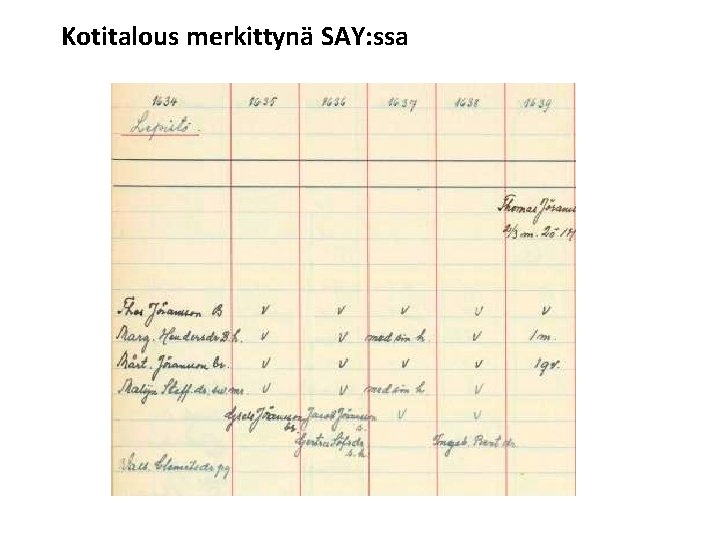 Kotitalous merkittynä SAY:ssa
1634 1635 1636 1637 1638 1639
Lepistö.
Thomas Jörans
2/3 m. 20
Thos Jöransson B v v v v v
Marg. Hendersdr B. h. v v med sin h. v 1 m.
Bårt. Jöransson br. v v v v 1 qv.
Malijn Steff. dr. sve mr v v med sin h v
Jöransson Jacob Jönsson v v
br. s.
Gertru Sofsdr Ingeb. Bent. dr.
s. h.
Vals. Clemetsdr pg